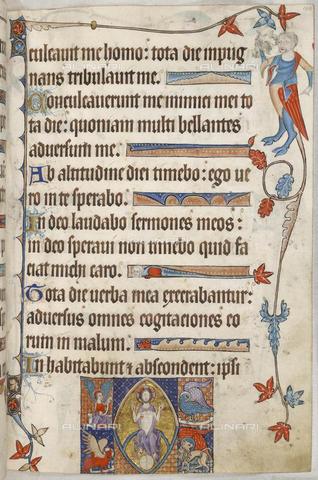 culcauit me homo: tota die inpug
nans tribulauit me.
Conculcauerunt me inimici mei to
ta die: quoniam multi bellantes
aduersum me.
Ab altitudine diei timebo: ego ue
ro in te sperabo.
In deo laudabo sermones meos:
in deo speraui non timebo quid fa
ciat michi caro.
Tota die uerba mea execrabantur:
aduersus omnes cogitaciones eo
rum in malum.
Inhabitabunt & abscondent: ipsi
ALINARI
ALINARI